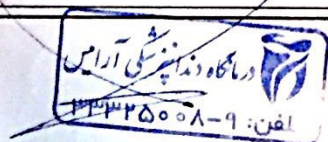 درمانگاه دندانپزشکی آرامیس
تلفن: ۹-۳۳۳۲۵۰۰۸